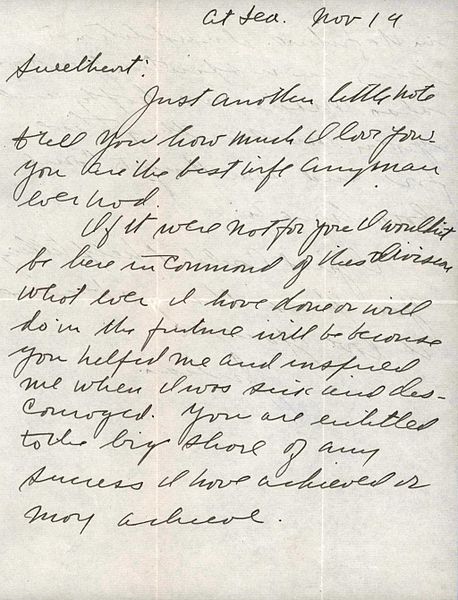 At Sea. Nov 19
Sweetheart:
Just another little note
to tell you how much I love you.
you are the best wife any man
ever had.
If it were not for you I wouldn't
be here in command of this division
What ever I have done or will
do in the future will be because
you helped me and inspired
me when I was sick and dis-
couraged. You are entitled
to the big share of any
success I have achieved or
may achieve.